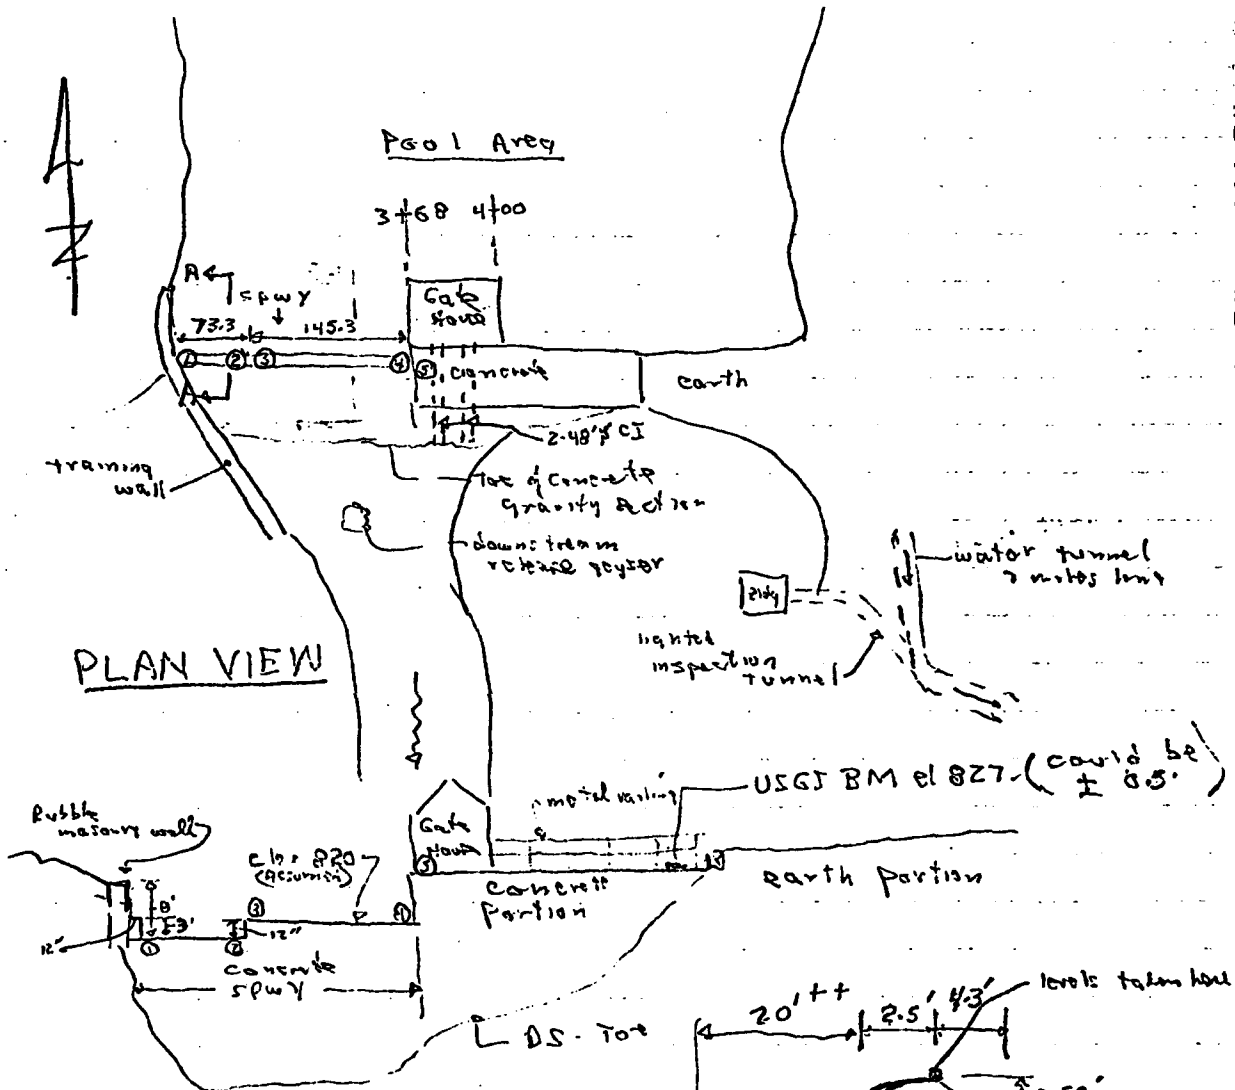 N
Pool Area
3+68 4+00
A
spwy
73.3
145.3
Gate
House
① ② ③ ④ ⑤
concrete
earth
A
2-48"ø CI
training
wall
toe of concrete
gravity section
downstream
release geyser
water tunnel
miles long
Bldg
lighted
inspection
tunnel
PLAN VIEW
USGS BM el 827 (could be
± 0.5'
metal railing
Rubble
masonry wall
Gate
House
el = 820
(assumed)
③
④
⑤
concrete
portion
earth portion
8'
3'
12"
12"
①
②
concrete
spwy
DS. Toe
20'++
2.5'
4.3'
levels taken here